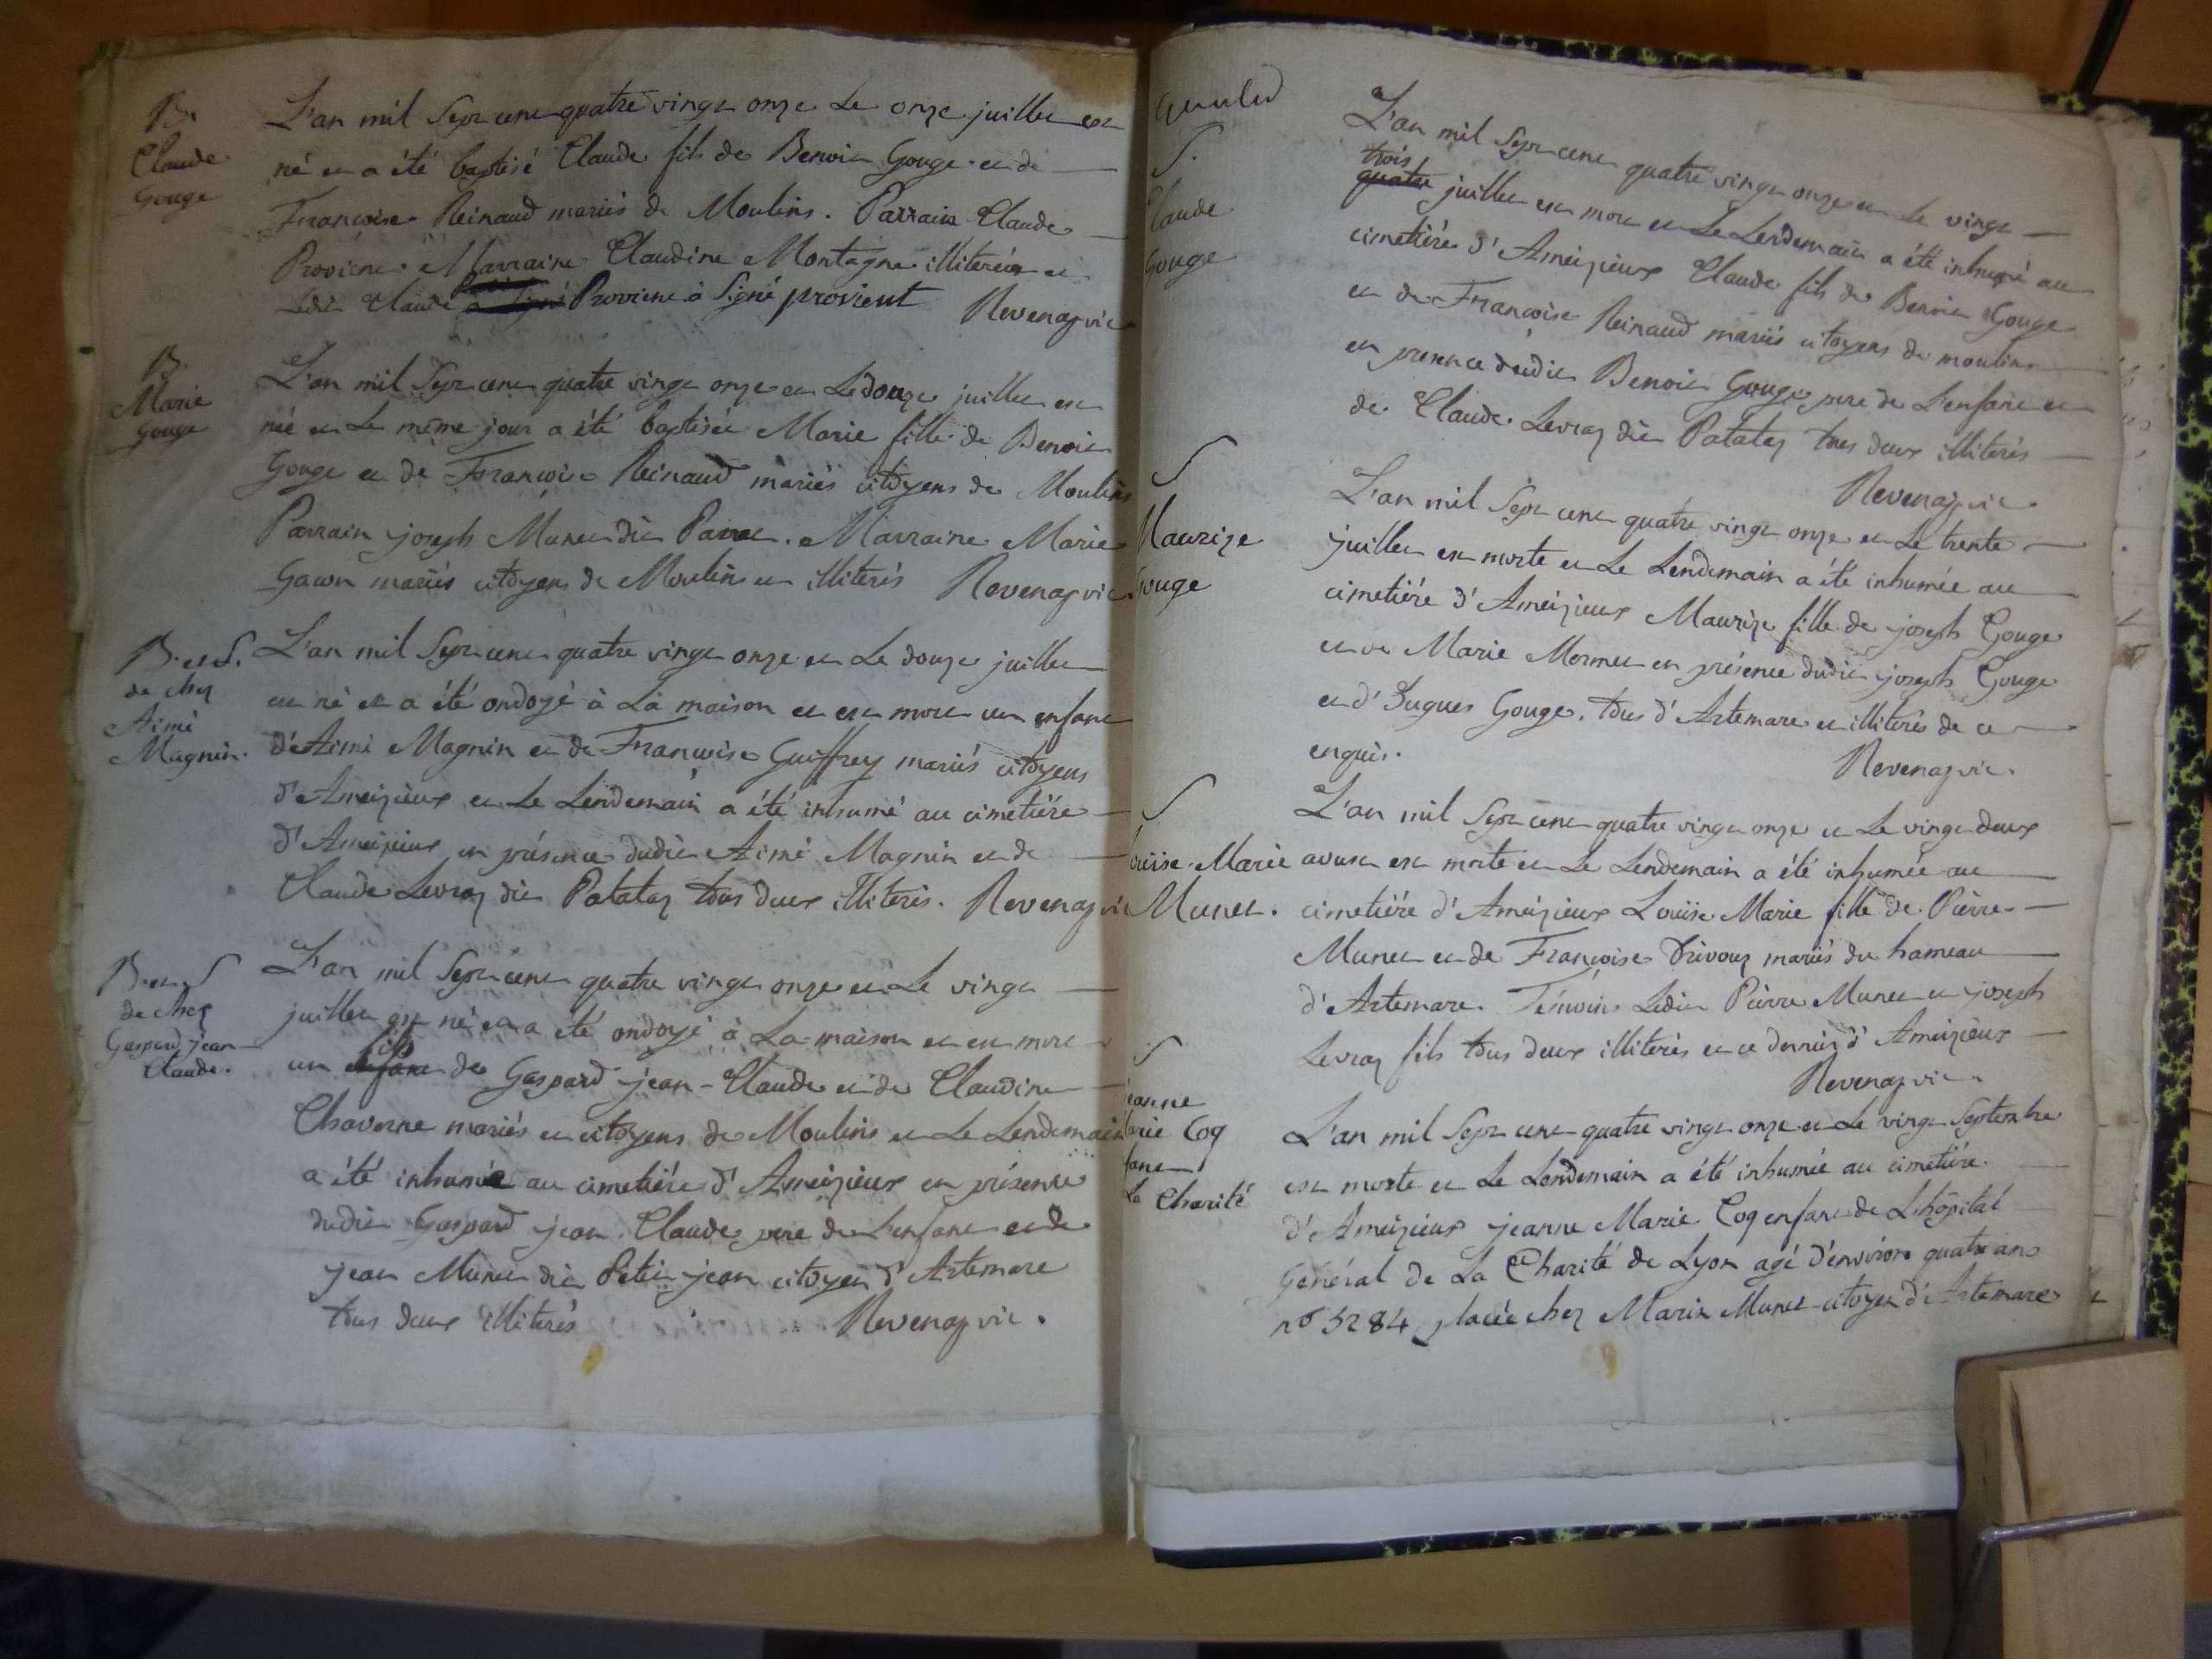 B.
Claude
Gouge
L'an mil Sept cent quatre vingt onze Le onze juillet est
né et a été baptisé Claude fils de Benoit Gouge et de
Françoise Reinaud mariés de Moulins. Parrain Claude
Provient Marraine Claudine Montagne illiterée et
Ledit Claude Provient à Signé provient Revenaz vic
B.
Marie
Gouge
L'an mil Sept cent quatre vingt onze et Le douze juillet est
née et Le même jour a été baptisée Marie fille de Benoit
Gouge et de Françoise Reinaud mariés citoyens de Moulins
Parrain joseph Munet dit Marraine Marie
mariés citoyens de Moulins et illiterés Revenaz vic
B. et S.
de chez
Aimé
Magnin.
L'an mil Sept cent quatre vingt onze et Le douze juillet
est né et a été ondoyé à La maison et est mort un enfant
d'Aimé Magnin et de Françoise Guiffrey mariés citoyens
d'Ameizieux et Le Lendemain a été inhumé au cimetière
d'Ameizieux en présence dudit Aimé Magnin et de
Claude Levraz dit Patataz tous deux illiterés. Revenaz vic
B. et S
de chez
Gaspard jean
Claude.
L'an mil Sept cent quatre vingt onze et Le vingt
juillet est né et a été ondoyé à La maison et est mort
un fils enfant de Gaspard jean-Claude et de Claudine
Chaverne mariés et citoyens de Moulins et Le Lendemain
a été inhumé au cimetière d'Ameizieux en présence
dudit Gaspard jean Claude pere de L'enfant et de
jean Munet dit Petit jean citoyen d'Artemare
tous deux illiterés Revenaz vic.
S.
Claude
Gouge
L'an mil Sept cent quatre vingt onze et Le vingt
trois
quatre juillet est mort et Le Lendemain a été inhumé au
cimetière d'Ameizieux Claude fils de Benoit Gouge
et de Françoise Reinaud mariés citoyens de moulins
en presence dudit Benoit Gouge pere de L'enfant et
de Claude Levraz dit Patataz tous deux illiterés
Revenaz vic.
S
Maurize
Gouge
L'an mil Sept cent quatre vingt onze et Le trente
juillet est morte et Le Lendemain a été inhumée au
cimetière d'Ameizieux Maurize fille de joseph Gouge
et de Marie Mermet en présence dudit joseph Gouge
et d'Hugues Gouge. tous d'Artemare et illiterés de ce
enquis.
Revenaz vic.
S
Louise Marie
Munet.
L'an mil Sept cent quatre vingt onze et Le vingt deux
avust est morte et Le Lendemain a été inhumée au
cimetière d'Ameizieux Louise Marie fille de Pierre
Munet et de Françoise Trivouz mariés du hameau
d'Artemare. Témoins Ledit Pierre Munet et joseph
Levraz fils tous deux illiterés et ce dernier d'Ameizieux
Revenaz vic.
S
jeanne
Marie Coq
La Charité
L'an mil Sept cent quatre vingt onze et Le vingt Septembre
est morte et Le Lendemain a été inhumée au cimetière
d'Ameizieux jeanne Marie Coq enfant de L'hôpital
Général de La Charité de Lyon agé d'environ quatre ans
n° 5284 placée chez Marie Munet citoyen d'Artemare